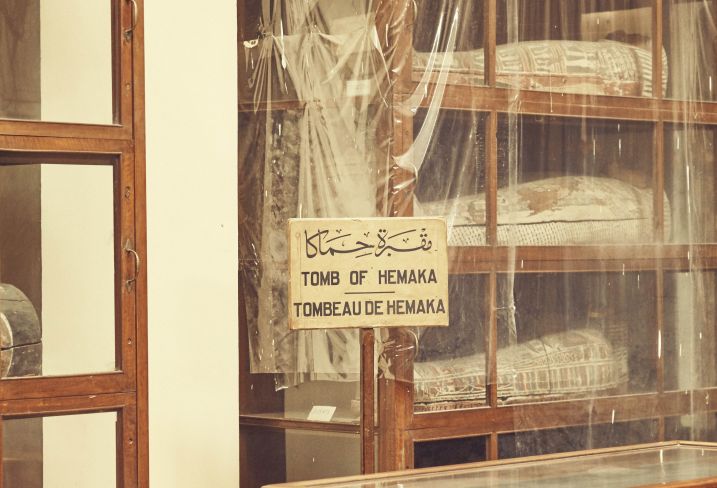 مقبرة حماكا
TOMB OF HEMAKA
TOMBEAU DE HEMAKA